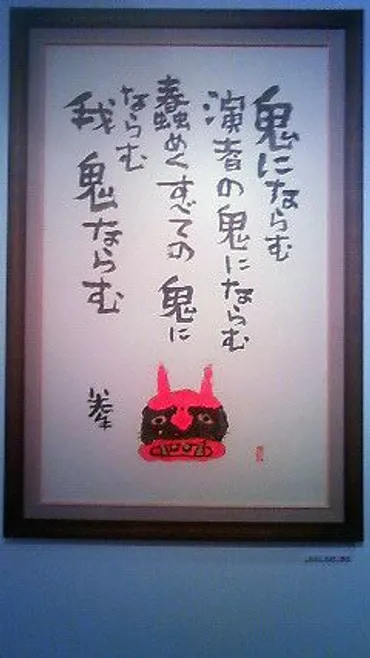 鬼にならむ
演者の鬼にならむ
蠢めくすべての鬼に
ならむ
我 鬼ならむ